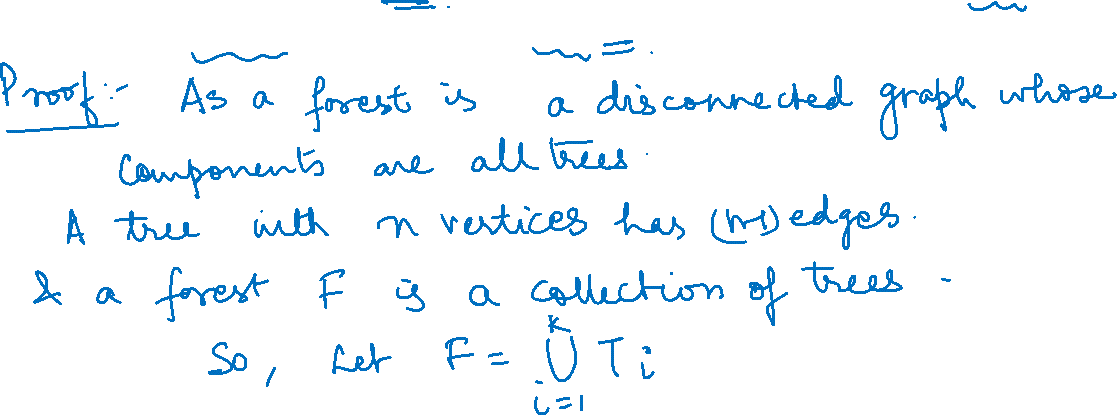 Proof:- As a forest is a disconnected graph whose
components are all trees.
A tree with n vertices has (n-1) edges.
& a forest F is a collection of trees -
So, Let F = ⋃ᵏᵢ₌₁ Tᵢ